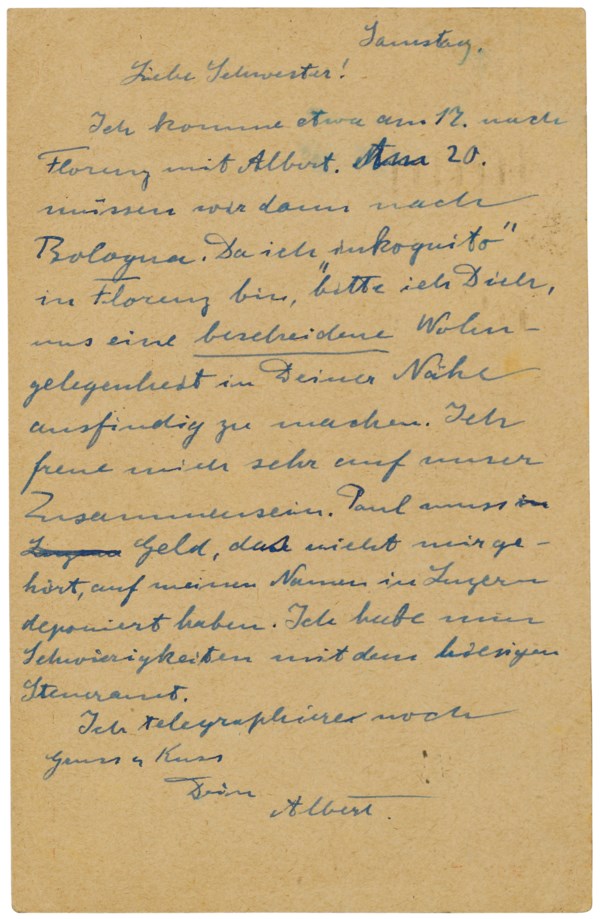 Samstag.
Liebe Schwester!
Ich komme etwa am 17. nach
Florenz mit Albert. Am 20.
müssen wir dann nach
Bologna. Da ich „inkognito"
in Florenz bin, bitte ich Dich,
uns eine bescheidene Wohn-
gelegenheit in Deiner Nähe
ausfindig zu machen. Ich
freue mich sehr auf unser
Zusammensein. Paul muss in
Luzern Geld, das nicht mir ge-
hört, auf meinen Namen in Luzern
deponiert haben. Ich habe nun
Schwierigkeiten mit dem hiesigen
Steueramt.
Ich telegraphiere noch
Gruss u Kuss
Dein
Albert.